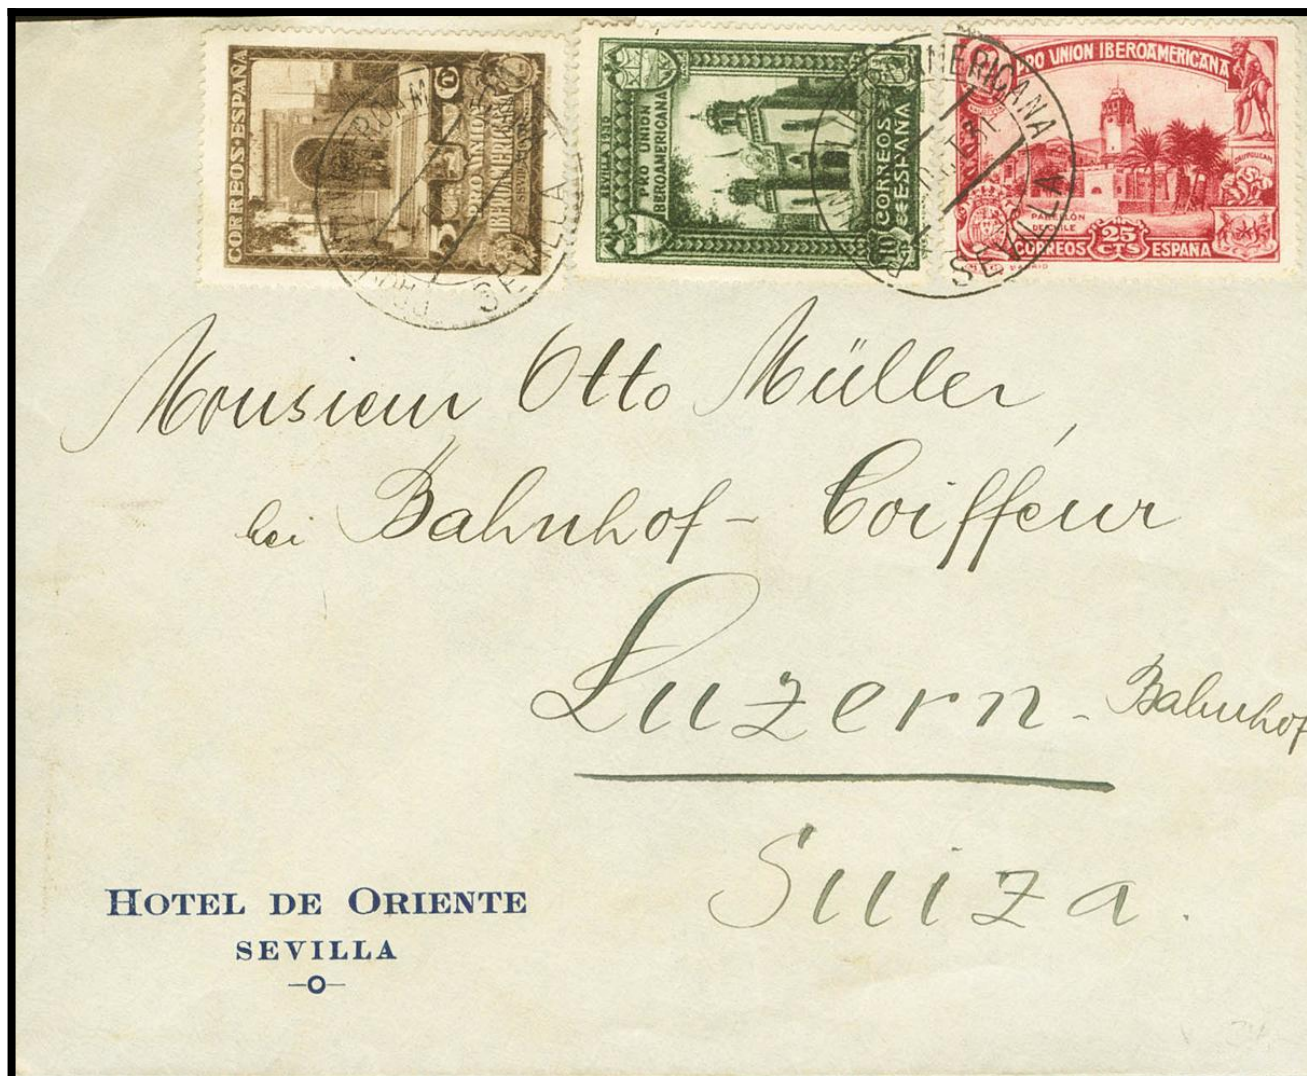 CORREOS·ESPAÑA
5 CTS
PRO UNION
IBEROAMERICANA
SEVILLA
SEVILLA
SEVILLA 1930
PRO UNION
IBEROAMERICANA
CORREOS
ESPAÑA
10
PRO UNION IBEROAMERICANA
PABELLÓN
DE CHILE
CORREOS 25 CTS ESPAÑA
AMERICANA
31
SEVILLA
Monsieur Otto Müller
bei Bahnhof - Coiffeur
Luzern - Bahnhof
Suiza.
HOTEL DE ORIENTE
SEVILLA